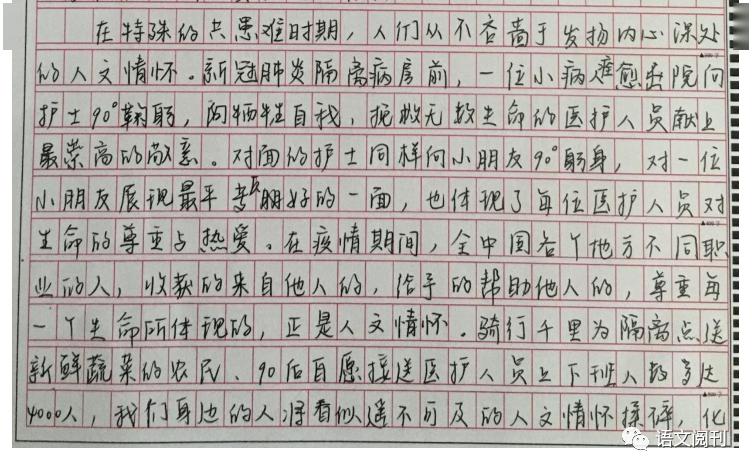 在特殊的共患难时期，人们从不吝啬于发扬内心深处
的人文情怀。新冠肺炎隔离病房前，一位小病难愈出院向
护士90°鞠躬，向牺牲自我，挽救无数生命的医护人员献上
最崇高的敬意。对面的护士同样向小朋友90°躬身，对一位
小朋友展现最平等友好的一面，也体现了每位医护人员对
生命的尊重与热爱。在疫情期间，全中国各个地方不同职
业的人，收获的来自他人的，给予的帮助他人的，尊重每
一个生命所体现的，正是人文情怀。骑行千里为隔离点送
新鲜蔬菜的农民、90后自愿接送医护人员上下班人数多达
4000人，我们身边的人将看似遥不可及的人文情怀揉碎，化
语文阅刊